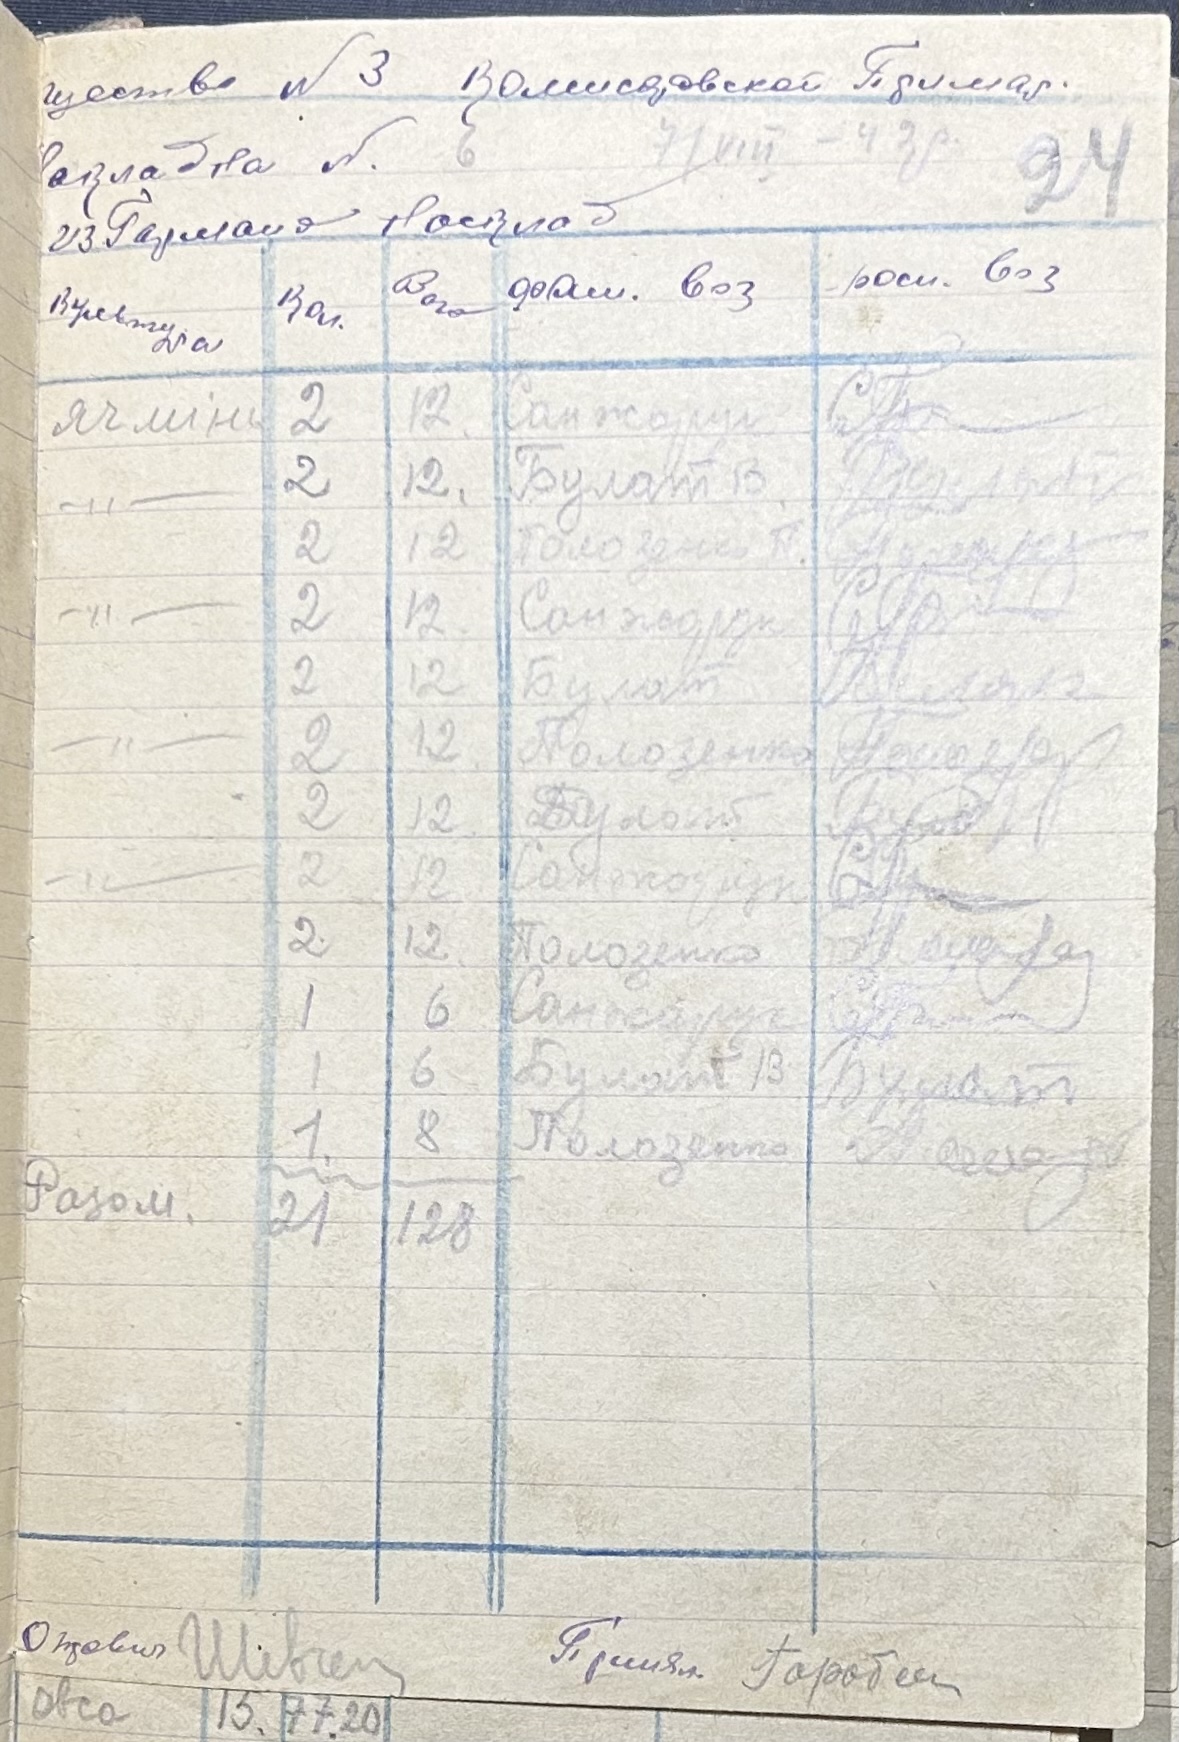 щество № 3 Комисаровской Примар.
акладна №. 6 7/VIII - 42 г. 24
из Гармана на склад
Культура Кол. Вага фам. воз росп. воз
ячмінь 2 12. Санжарук
-"- 2 12. Булат В. Булат
2 12 Полозенко П.
-"- 2 12. Санжарук
2 12 Булат Булат
-"- 2 12. Полозенко
2 12. Булат
-"- 2 12. Санжарук
2 12. Полозенко
1 6 Санжарук
1 6 Булат В Булат
1. 8 Полозенко
Разом. 21 128
Отправил Шевчен Принял Горобец
овса 15. 77.20